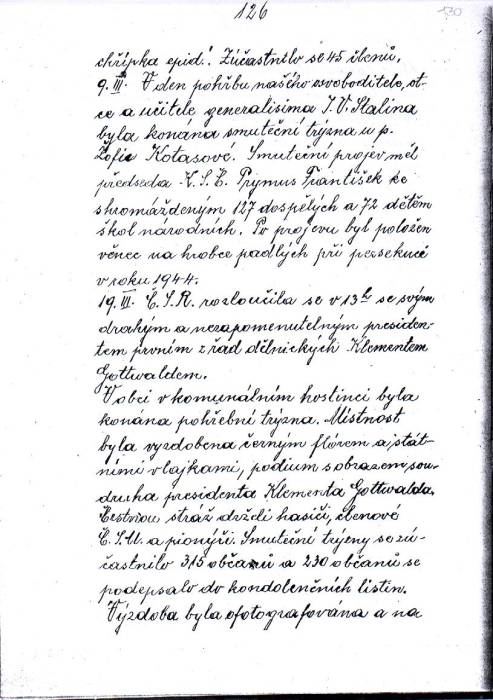 126
130
chřipka epid. Zúčastnilo se 45 členů.
9. III. V den pohřbu našeho osvoboditele, ot-
ce a učitele generalisima J. V. Stalina
byla konána smuteční trýzna u p.
Žofie Kotasové. Smuteční projev měl
předseda K.S.Č. Prymus František ke
shromážděným 127 dospělých a 72 dětem
škol národních. Po projevu byl položen
věnec na hrobce padlých při persekuci
v roku 1944.
19. III. Č.S.R. rozloučila se v 13h se svým
drahým a nezapomenutelným presiden-
tem prvním z řad dělnických Klementem
Gottwaldem.
V obci v komunálním hostinci byla
konána pohřební trýzna. Místnost
byla vyzdobena černým flórem a stát-
ními vlajkami, podium s obrazem sou-
druha presidenta Klementa Gottwalda.
Čestnou stráž drželi hasiči, členové
Č.S.M. a pionýři. Smuteční trýzny se zú-
častnilo 315 občanů a 230 občanů se
podepsalo do kondolenčních listin.
Výzdoba byla ofotografována a na